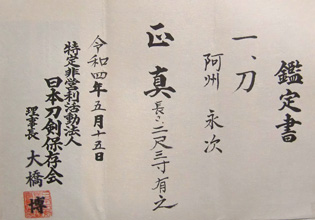 鑑定書
一、刀
阿州 永次
正真 長さ二尺三寸有之
令和四年五月十五日
特定非営利活動法人
日本刀剣保存会
理事長 大橋
博